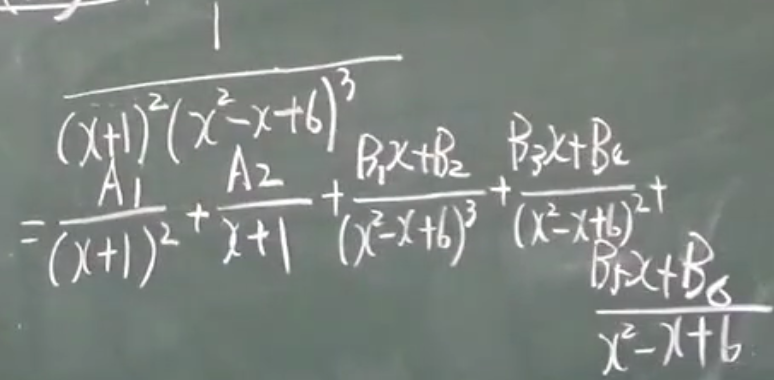 1/((x+1)²(x²-x+6)³)
= A₁/(x+1)² + A₂/(x+1) + (B₁x+B₂)/(x²-x+6)³ + (B₃x+B₄)/(x²-x+6)² +
(B₅x+B₆)/(x²-x+6)